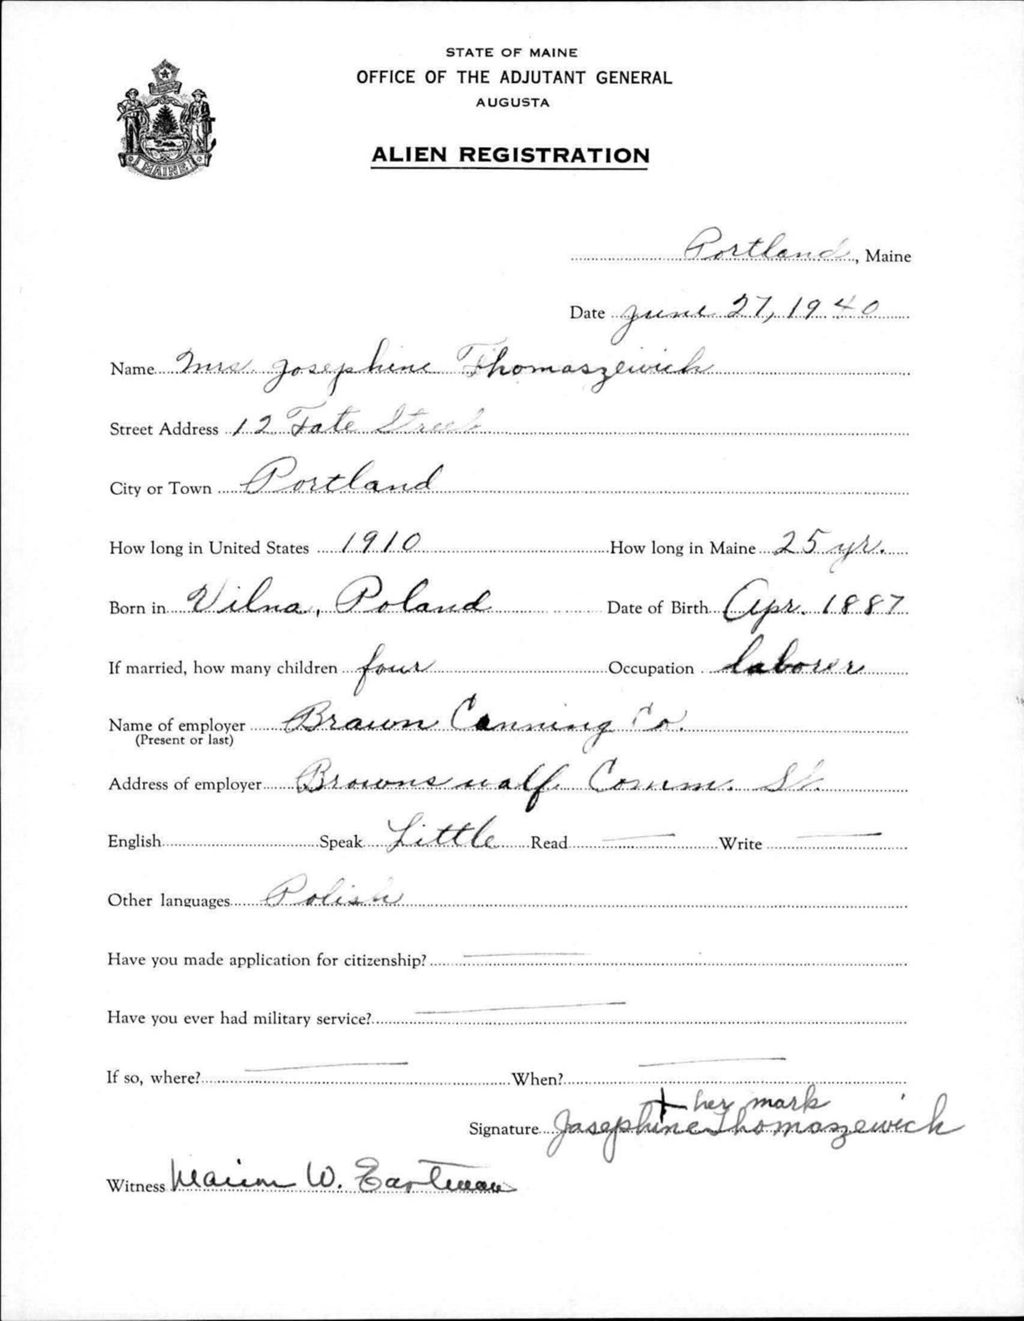 STATE OF MAINE
OFFICE OF THE ADJUTANT GENERAL
AUGUSTA
ALIEN REGISTRATION
MAINE
Portland, Maine
Date June 27, 1940
Name Mrs Josephine Thomaszewich
Street Address 12 Tate Street
City or Town Portland
How long in United States 1910 How long in Maine 25 yr.
Born in Vilna, Poland Date of Birth Apr. 1887
If married, how many children four Occupation laborer
Name of employer Brawn Canning Co.
(Present or last)
Address of employer Browns walf Comm. St.
English Speak Little Read — Write —
Other languages Polish
Have you made application for citizenship? —
Have you ever had military service? —
If so, where? — When? —
+ her mark
Signature Josephine Thomaszewich
Witness Marion W. Eastman